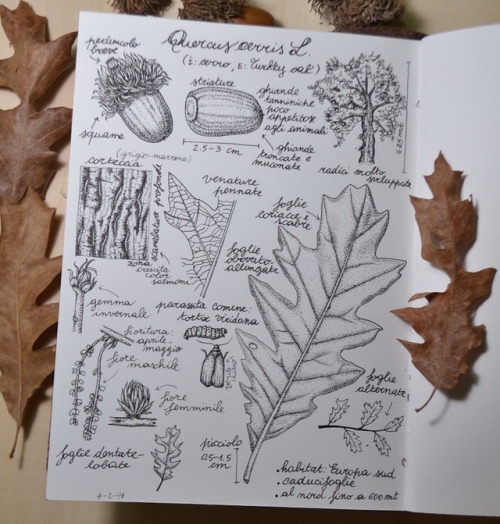 Quercus cerris L.
(I: cerro, E: Turkey oak)
peduncolo
breve
squame
striature
2.5-3 cm
ghiande
tanniniche
poco
appetitose
agli animali
ghiande
troncate e
mucronate
radici molto
sviluppate
(grigio-marrone)
corteccia
scanalature profonde
zona
crescita
color
salmone
venature
pennate
foglie
coriacee e
scabre
foglie
obovato-
allungate
gemma
invernale
parassita comune:
tortrix viridana
fioritura:
aprile-
maggio
fiore
maschile
fiore
femminile
foglie
alternate
foglie dentate-
lobate
picciolo
0.5-1.5
cm
. habitat: Europa sud
. caducifoglie
. al nord fino a 800 mt